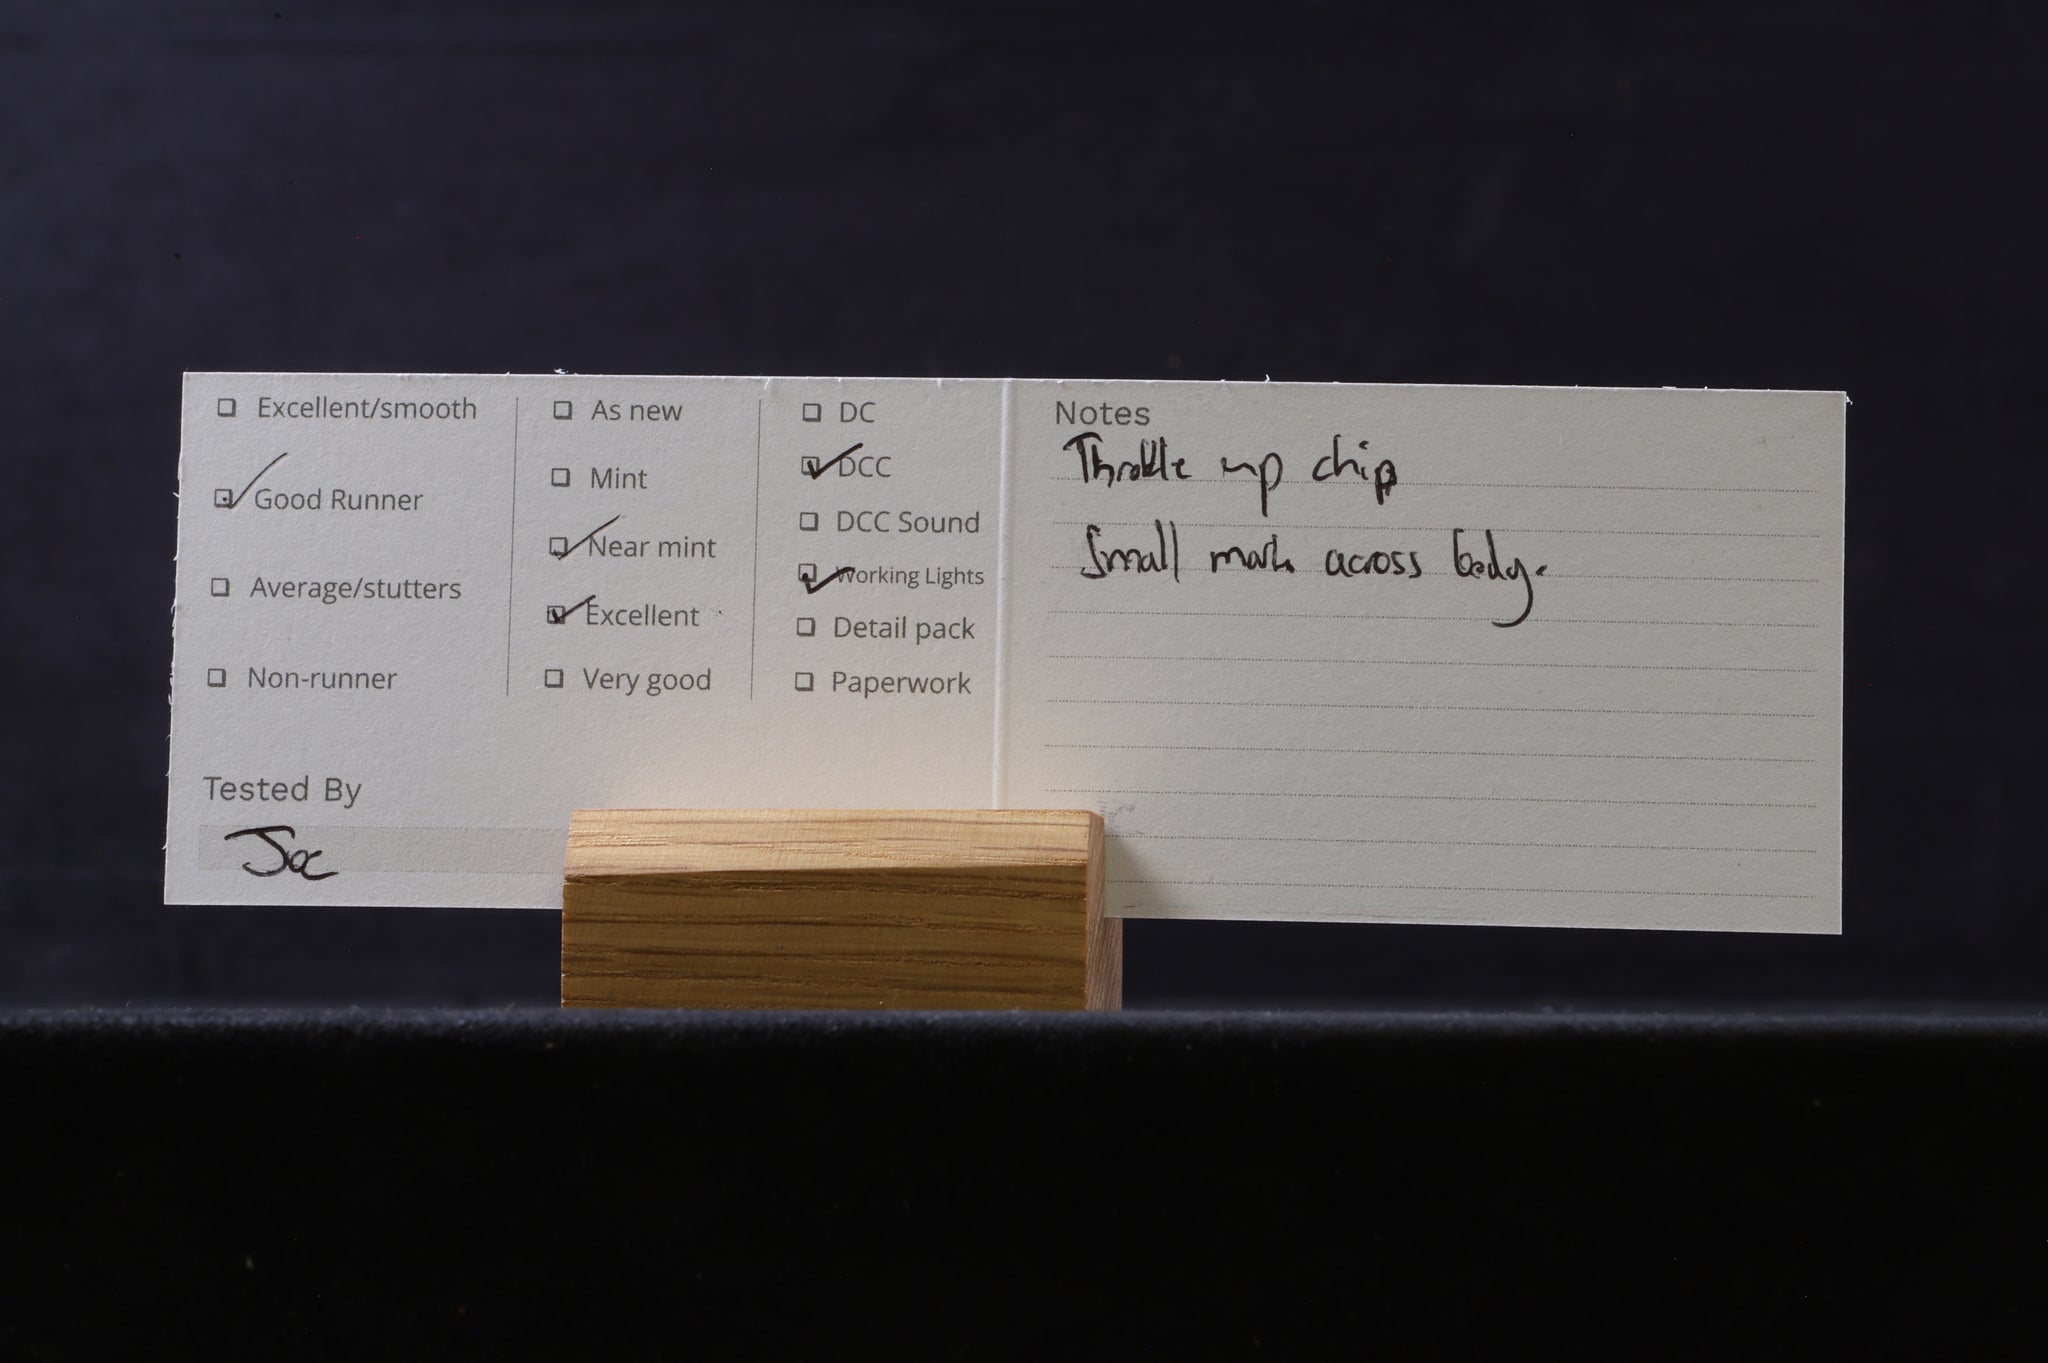 Excellent/smooth
Good Runner
Average/stutters
Non-runner
As new
Mint
Near mint
Excellent
Very good
DC
DCC
DCC Sound
Working Lights
Detail pack
Paperwork
Tested By
Joe
Notes
Throttle up chip
Small mark across body.